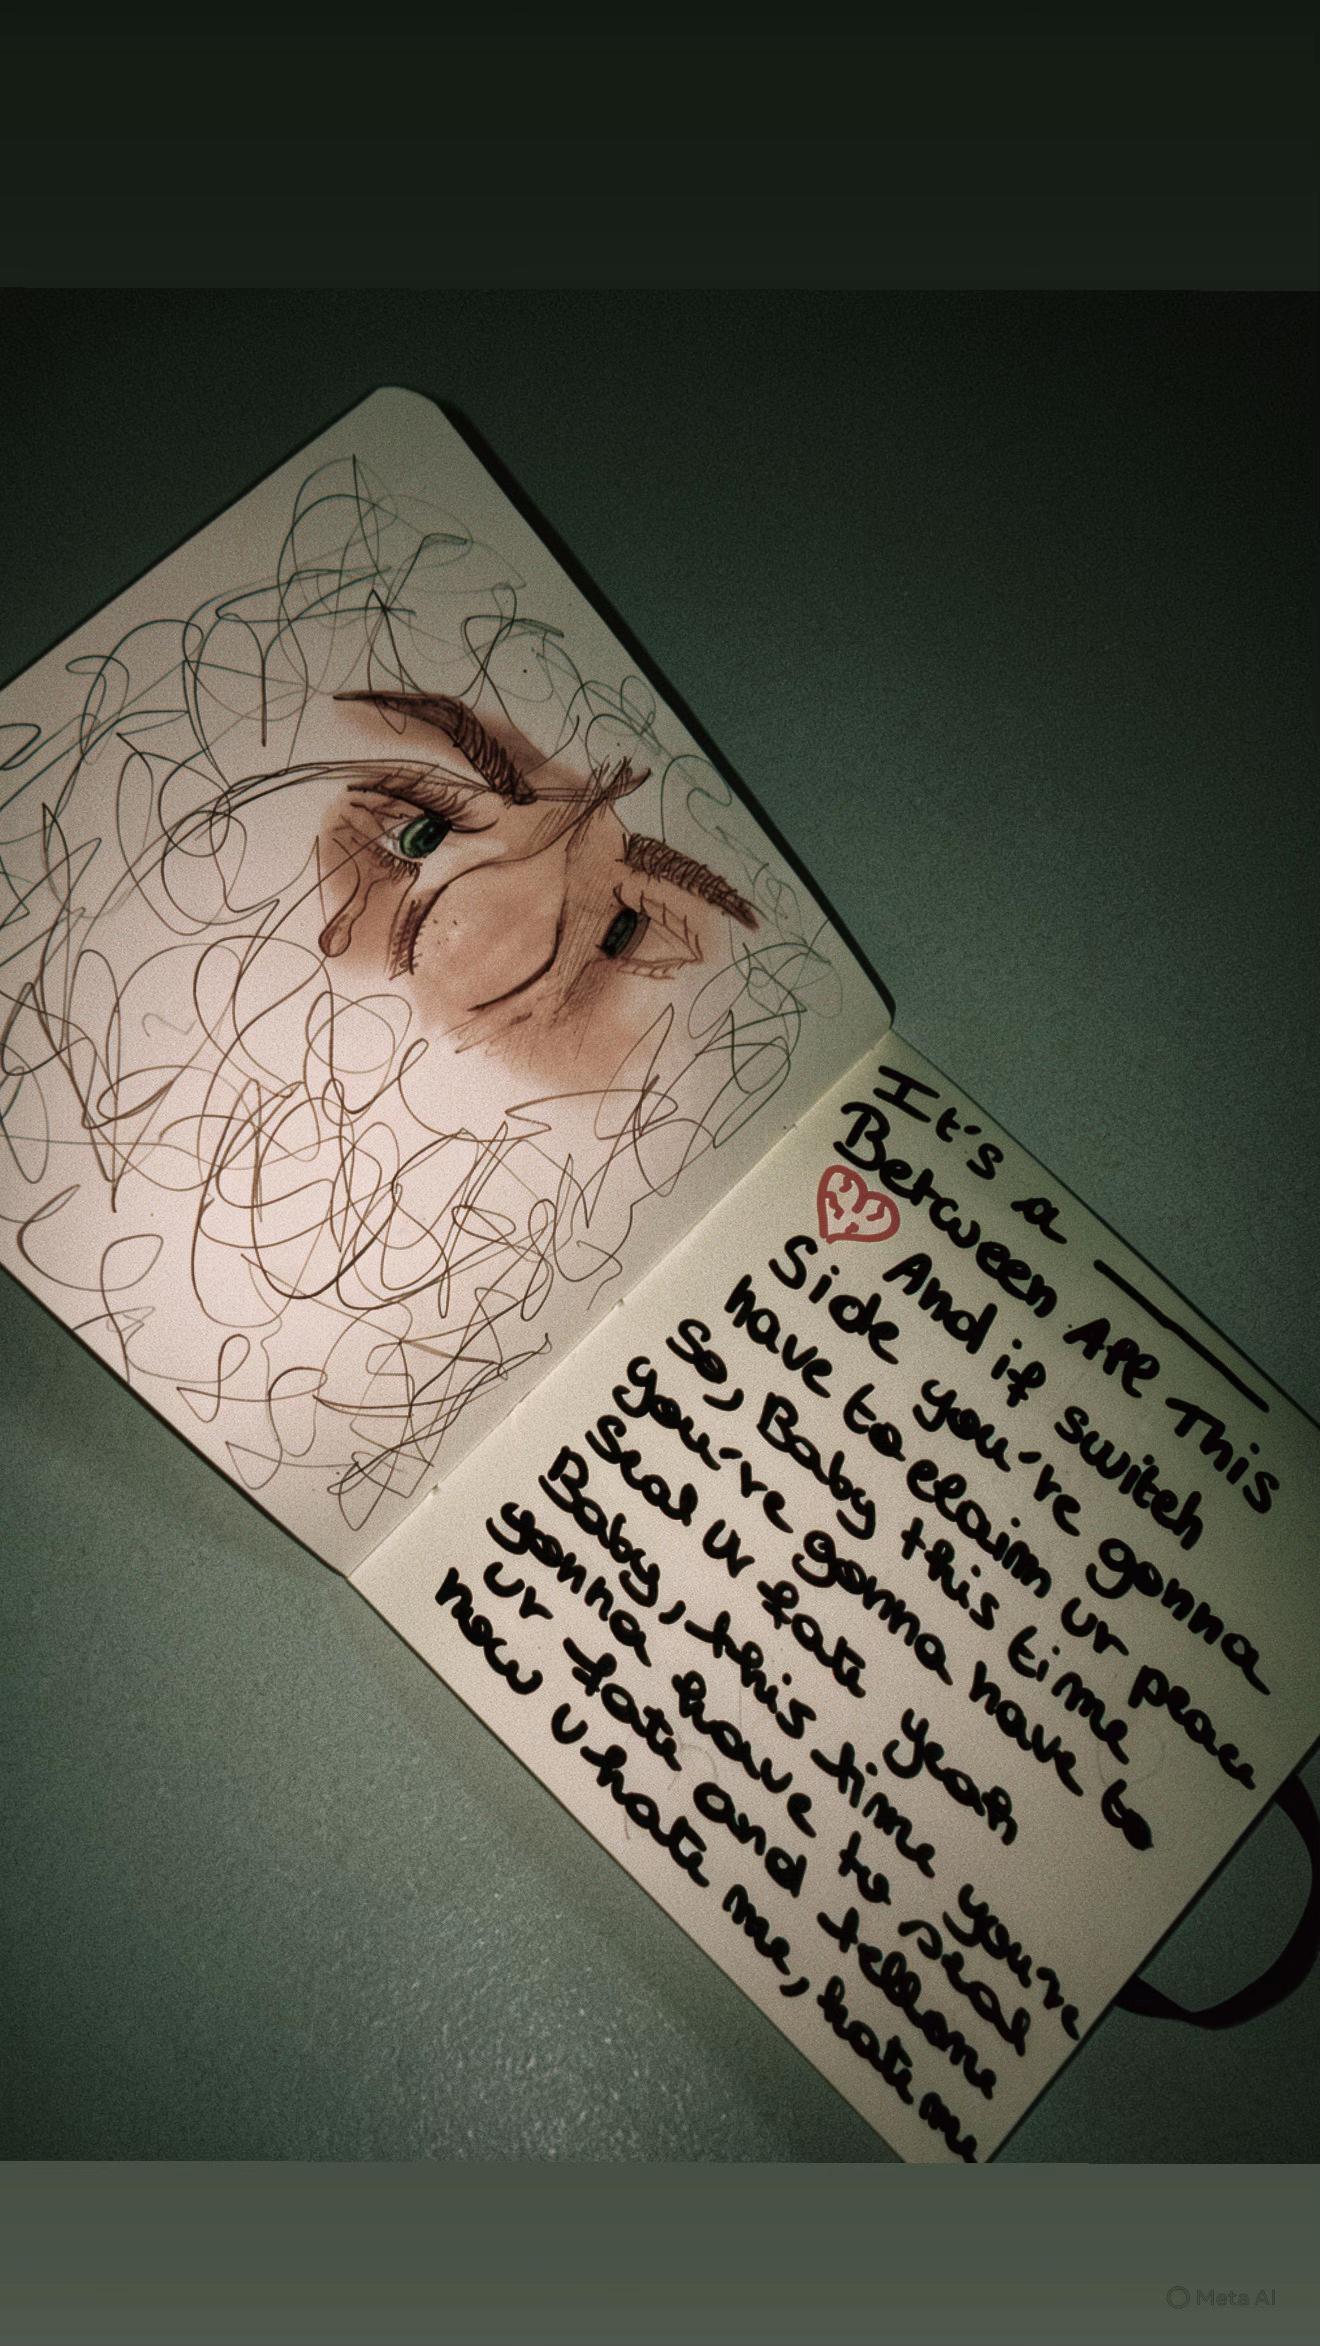 It's a ——
Between All This
❤ And if switch
Side you're gonna
have to claim ur peace
So, Baby this time
you're gonna have to
Seal ur fate yeah
Baby, this time you're
gonna have to seal
ur fate and tell me
now u hate me, hate me
Meta AI